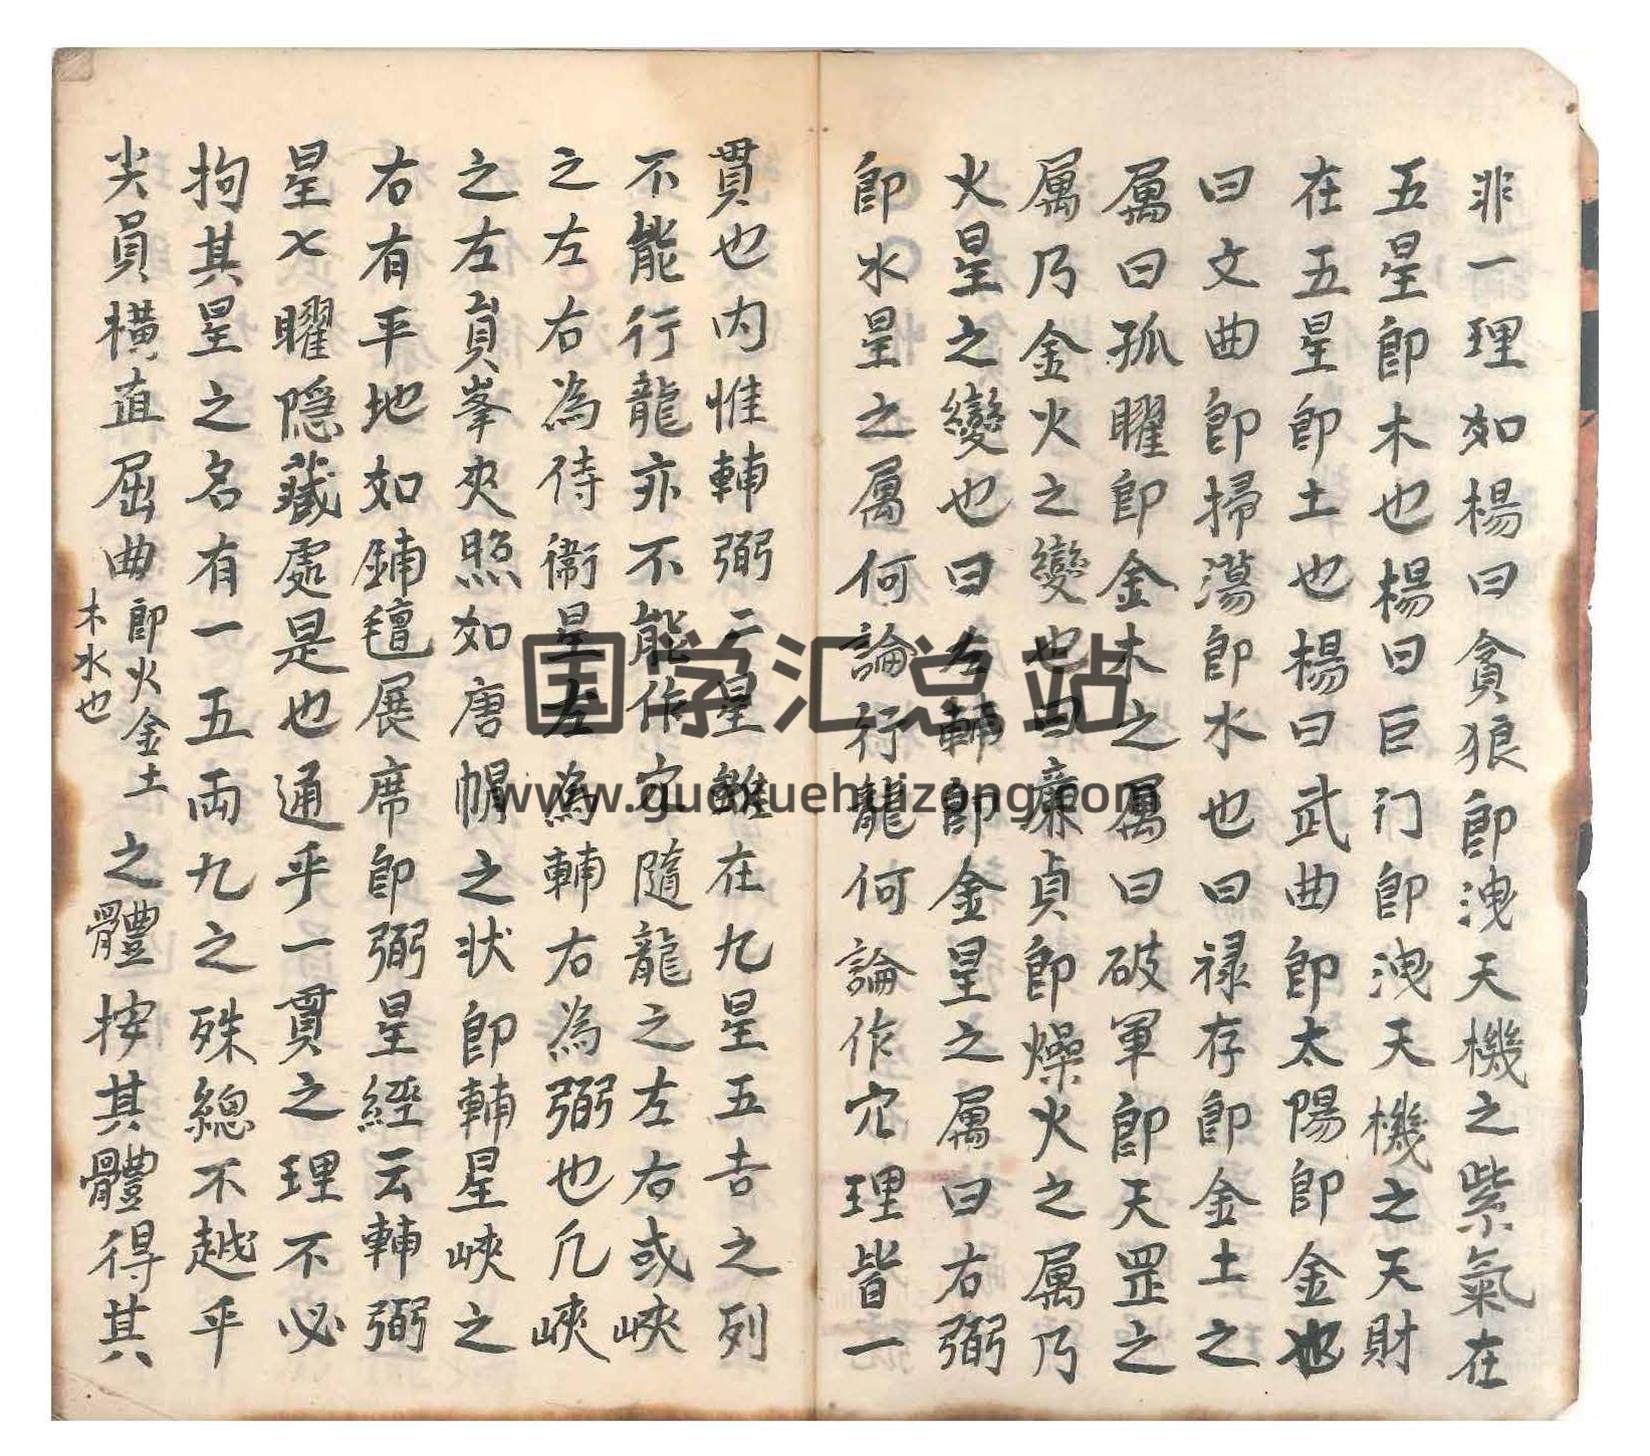 非一理如楊曰貪狼即洩天機之紫氣在
五星即木也楊曰巨门即洩天機之天財
在五星即土也楊曰武曲即太陽即金也
曰文曲即掃蕩即水也曰禄存即金土之
属曰孤曜即金木之属曰破軍即天罡之
属乃金火之變也曰廉貞即燥火之属乃
火星之變也曰左輔即金星之属曰右弼
即水星之属何論行龍何論作穴理皆一
貫也内惟輔弼二星雖在九星五吉之列
不能行龍亦不能作穴隨龍之左右或峽
之左右為侍衛星左為輔右為弼也凢峽
之左右員峯夾照如唐帽之状即輔星峽之
右有平地如鋪氊展席即弼星經云輔弼
星七曜隐藏處是也通乎一貫之理不必
拘其星之名有一五両九之殊總不越乎
尖員横直屈曲即火金土木水也之體按其體得其
国学汇总站
www.guoxuehuizong.com